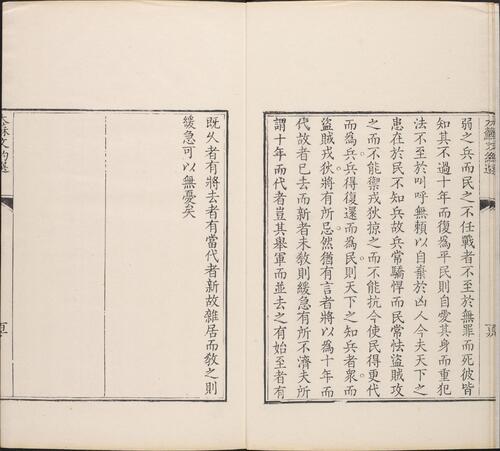 弱之兵而民之不任戰者不至於無罪而死彼皆
知其不過十年而復爲平民則自愛其身而重犯
法不至於叫呼無賴以自棄於凶人今夫天下之
患在於民不知兵故兵常驕悍而民常怯盜賊攻
之而不能禦戎狄掠之而不能抗今使民得更代
而爲兵兵得復還而爲民則天下之知兵者衆而
盜賊戎狄將有所忌然猶有言者將以爲十年而
代故者已去而新者未敎則緩急有所不濟夫所
謂十年而代者豈其舉軍而並去之有始至者有
既久者有將去者有當代者新故雜居而敎之則
緩急可以無憂矣